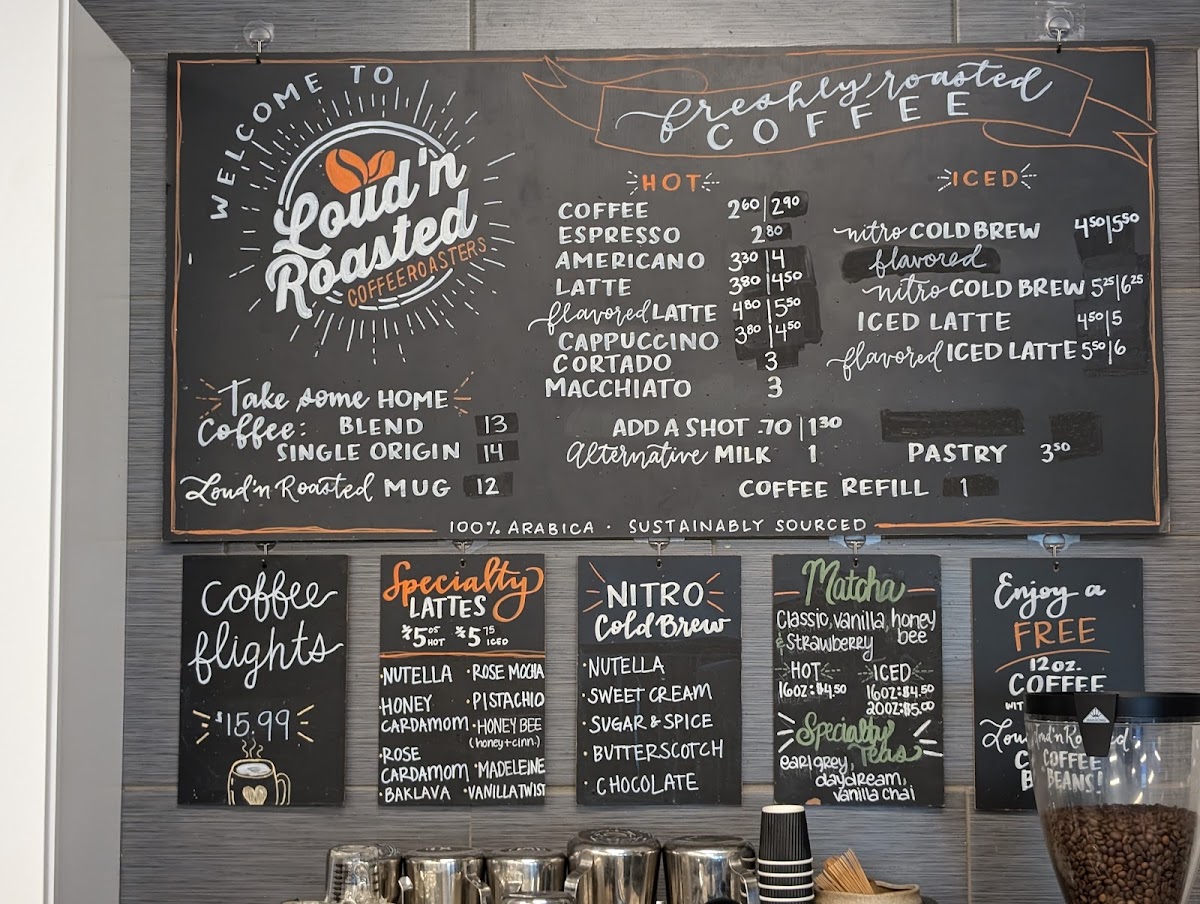 WELCOME TO
Loud'n
Roasted
COFFEEROASTERS
freshly roasted
COFFEE
HOT
COFFEE 2⁶⁰|2⁹⁰
ESPRESSO 2⁸⁰
AMERICANO 3³⁰|4
LATTE 3⁸⁰|4⁵⁰
flavored LATTE 4⁸⁰|5⁵⁰
CAPPUCCINO 3⁸⁰|4⁵⁰
CORTADO 3
MACCHIATO 3
ICED
nitro COLD BREW 4⁵⁰|5⁵⁰
flavored
nitro COLD BREW 5²⁵|6²⁵
ICED LATTE 4⁵⁰|5
flavored ICED LATTE 5⁵⁰|6
Take some HOME
Coffee: BLEND 13
SINGLE ORIGIN 14
Loud'n Roasted MUG 12
ADD A SHOT .70|1³⁰
Alternative MILK 1
PASTRY 3⁵⁰
COFFEE REFILL 1
100% ARABICA · SUSTAINABLY SOURCED
Coffee
flights
$15.99
Specialty
LATTES
$5⁰⁵ HOT $5⁷⁵ ICED
·NUTELLA
·HONEY
CARDAMOM
·ROSE
CARDAMOM
·BAKLAVA
·ROSE MOCHA
·PISTACHIO
·HONEY BEE
(honey+cinn.)
·MADELEINE
·VANILLA TWIST
NITRO
Cold Brew
·NUTELLA
·SWEET CREAM
·SUGAR & SPICE
·BUTTERSCOTCH
·CHOCOLATE
Matcha
Classic, vanilla, honey
bee
& strawberry
HOT
16OZ:$4.50
ICED
16OZ:$4.50
20OZ:$5.00
Specialty
Teas
earl grey,
daydream,
vanilla chai
Enjoy a
FREE
12 oz.
COFFEE
Loud'n Roasted
COFFEE
BEANS!